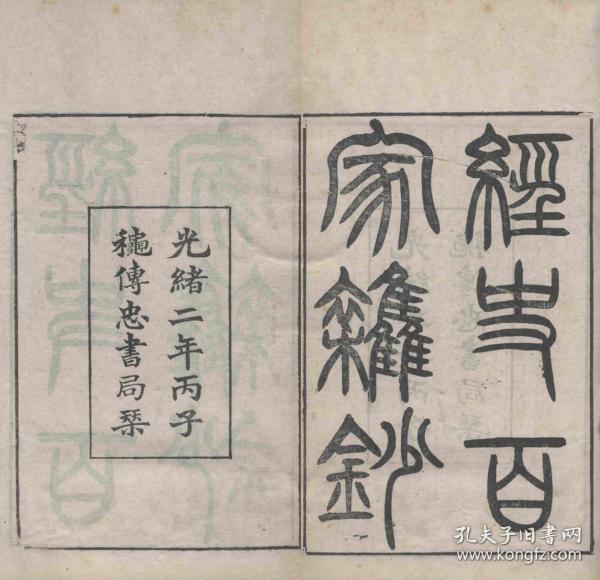 經史百
家雜鈔
光緒二年丙子
龝傳忠書局栞
孔夫子旧书网
www.kongfz.com